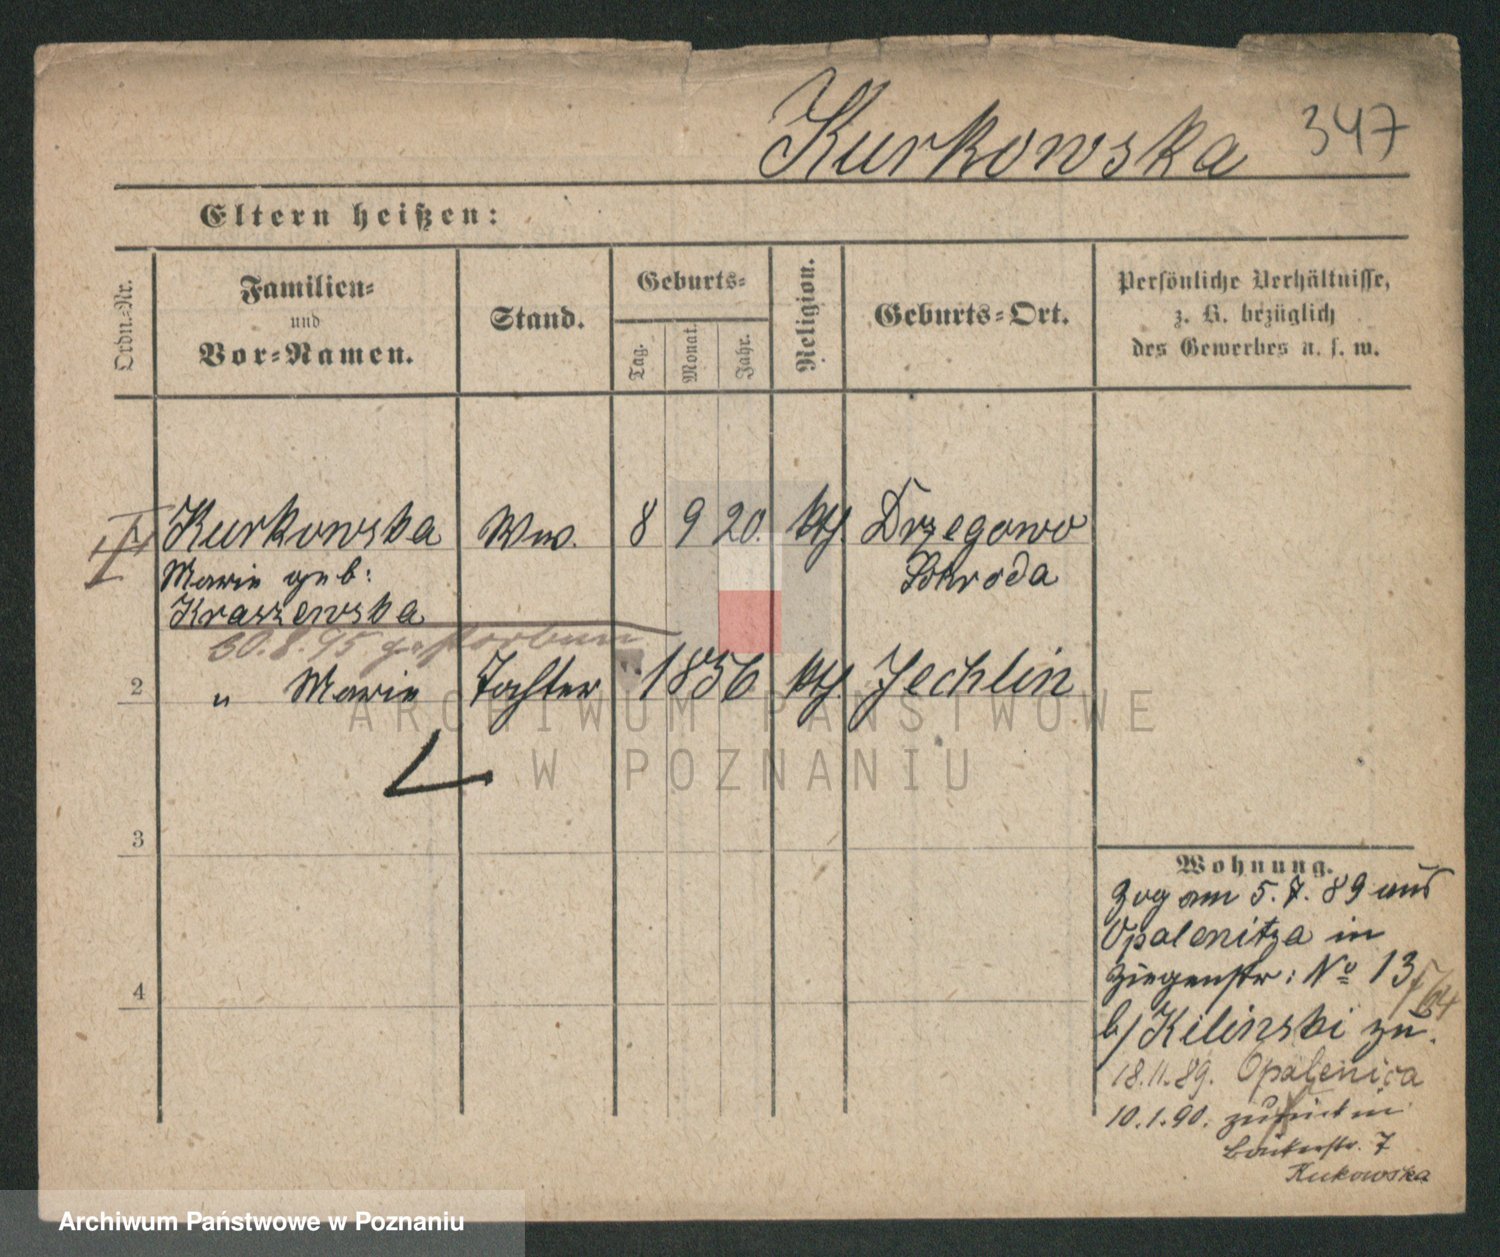 Kurkowska 347
Eltern heißen:
Ordn.-Nr.
Familien-
und
Vor-Namen.
Stand.
Geburts-
Tag.
Monat.
Jahr.
Religion.
Geburts-Ort.
Persönliche Verhältnisse,
z. B. bezüglich
des Gewerbes u. s. w.
Kurkowska Ww. 8 9 20. kth. Drzegowo
Marie geb: Schroda
Kraszewska
30.8.95 gestorben
2 " Marie Tochter 1856 kth Jechlin
ARCHIWUM PAŃSTWOWE
W POZNANIU
3
4
Wohnung.
Zog am 5.7.89 aus
Opalenitza in
Ziegenstr: No 13
b/Kilinski zu.
18.11.89. Opalenica
10.1.90. zurück in
7
Kukowska
Archiwum Państwowe w Poznaniu